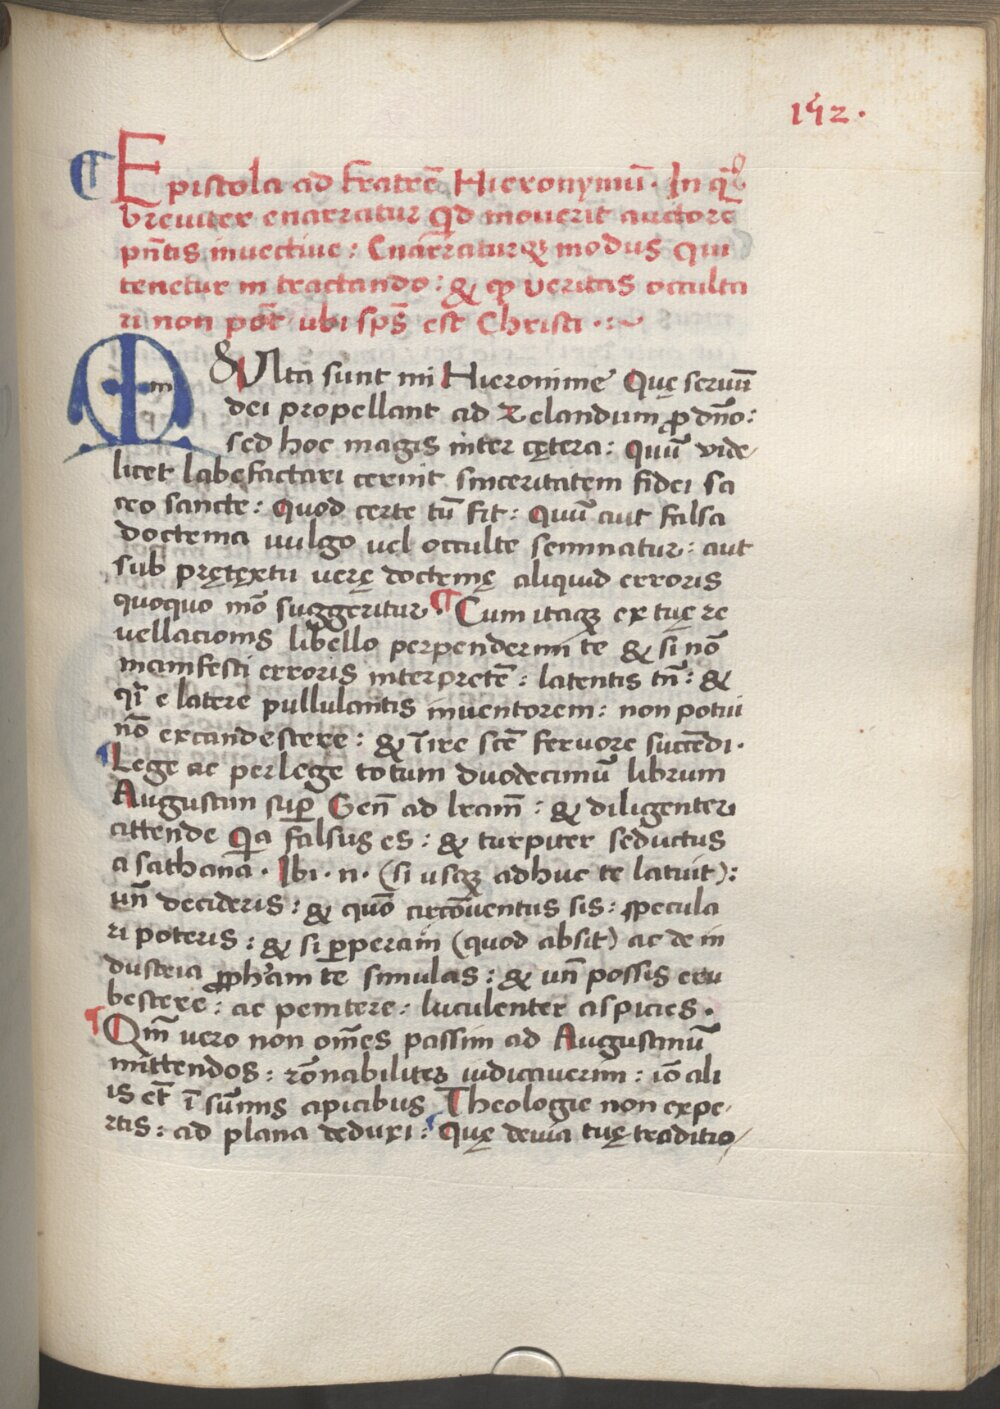 152.
Epistola ad fratrē Hieronymū. In qͥbꝰ
breviter enarratur qd moverit auctorē
pn̄tis invective: Enarraturqꝫ modus qui
tenetur in tractando: & ꝙ veritas occulta
ri non pōt ubi sp̄s est Christi.
MUlta sunt mi Hieronime Quę servū
dei propellant ad zelandum ꝓ dn̄o:
sed hoc magis inter cętera: Quū vide
licet labefactari cernit sinceritatem fidei sa
cro sancte: Quod certe tū fit: Quū aut falsa
doctrina vulgo vel occulte seminatur: aut
sub prętextu verę doctrinę aliquid erroris
quoquo mō suggeritur. ¶ Cum itaqꝫ ex tuę re
vellacionis libello perpenderim te & si nō
manifesti erroris interpretē: latentis tn̄: &
qͣi e latere pullulantis inventorem: non potui
nō excandescere: & ire scē fervore succēdi.
Lege ac perlege totum duodecimū librum
Augustini suꝑ Gen̄ ad lram̄: & diligenter
attende Qͣ falsus es: & turpiter seductus
a sathana. Ibi.n.(si usqꝫ adhuc te latuit):
un̄ decideris: & quō circōventus sis: specula
ri poteris: & si ꝑperam (quod absit) ac de in
dustria ꝓph̄am te simulas: & un̄ possis eru
bescere: ac penitere: luculenter aspicies.
¶ Qm̄ vero non om̄es passim ad Augustinū
mittendos: rōnabiliter iudicaverim: iō ali
is et̄ ī sūmis apicibus Theologie non expe
rtis: ad plana deduxi: Quę devia tuę traditio